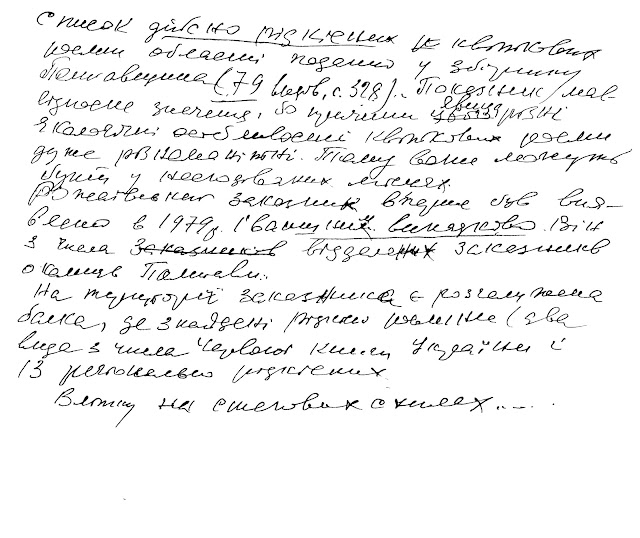 Список дійсно рідкісних квіткових
рослин області подано у збірнику
Полтавщина (79 видів, с. 328). Показник має
відносне значення, бо причини явища різні
Екологічні особливості квіткових рослин
дуже різноманітні. Тому вони можуть
бути у несподіваних місцях.
Рожаївський заказник вперше був вия-
влено в 1979 р. і випадково. Він
з числа заказників віддалених заказників
околиць Полтави.
На території заказника є розгалужена
балка, де знайдені рідкісні рослини (два
вида з числа Червоної книги України і
13 регіонально рідкісних
Влітку на степових схилах.....